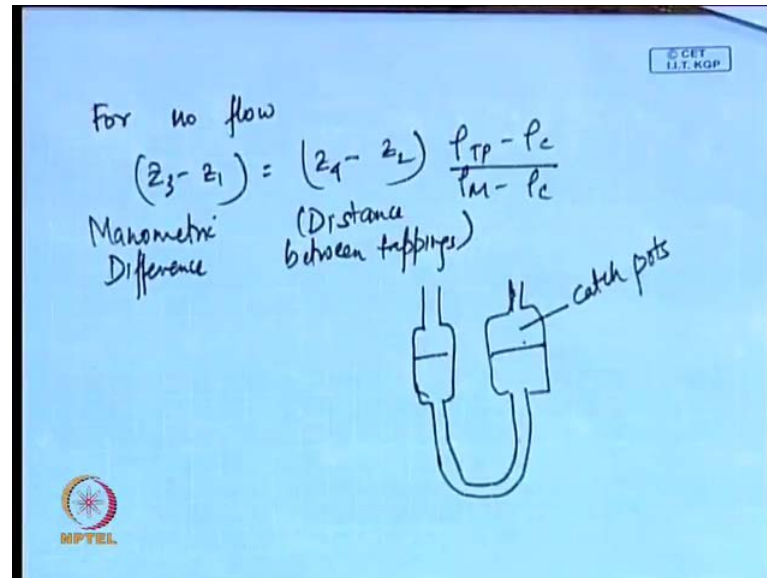 © CET
I.I.T. KGP
For no flow
(z₃ - z₁) = (z₄ - z₂) (ρ_TP - ρ_c) / (ρ_M - ρ_c)
Manometric (Distance
Difference between tappings)
catch pots
NPTEL